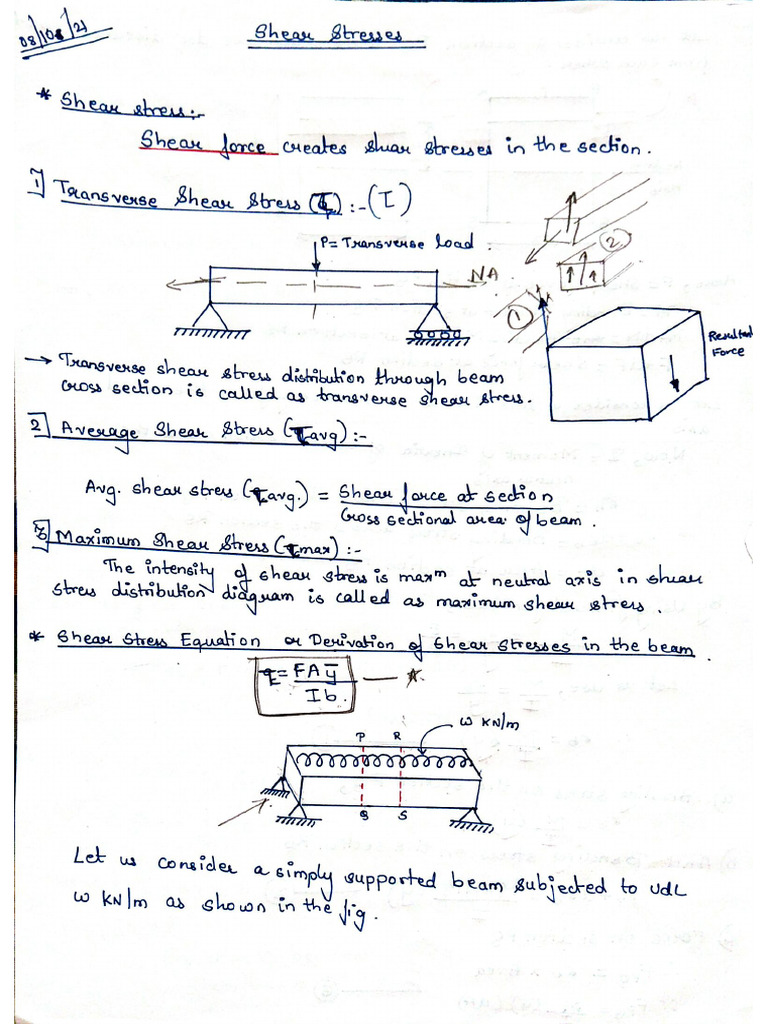 08/10/21
Shear Stresses
* Shear stress:-
Shear force creates shear stresses in the section.
1] Transverse Shear Stress (τ) :- (τ)
P = Transverse load.
NA
2
1
Resulted
Force
→ Transverse shear stress distribution through beam
cross section is called as transverse shear stress.
2] Average Shear Stress (τavg) :-
Avg. shear stress (τavg.) = Shear force at section
Cross sectional area of beam.
3] Maximum Shear Stress (τmax) :-
The intensity of shear stress is maxᵐ at neutral axis in shear
stress distribution diagram is called as maximum shear stress.
* Shear Stress Equation or Derivation of Shear Stresses in the beam.
τ = FAȳ
Ib.
w KN/m
P R
Q S
Let us consider a simply supported beam subjected to udl
w KN/m as shown in the fig.